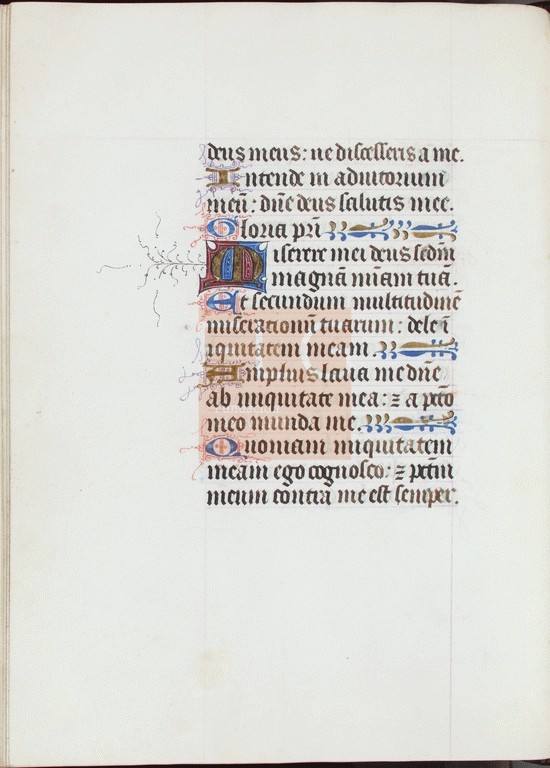 deus meus: ne discesseris a me.
Intende in adiutorium
meū: dn̄e deus salutis mee.
Gloria pr̄i
Miserere mei deus scdm̄
magnā mīam tuā.
Et secundum multitudinē
miseracionū tuarum: dele ī
iquitatem meam.
Amplius laua me dn̄e
ab iniquitate mea: ⁊ a pctō
meo munda me.
Quoniam iniquitatem
meam ego cognosco: ⁊ pctm̄
meum contra me est semper.